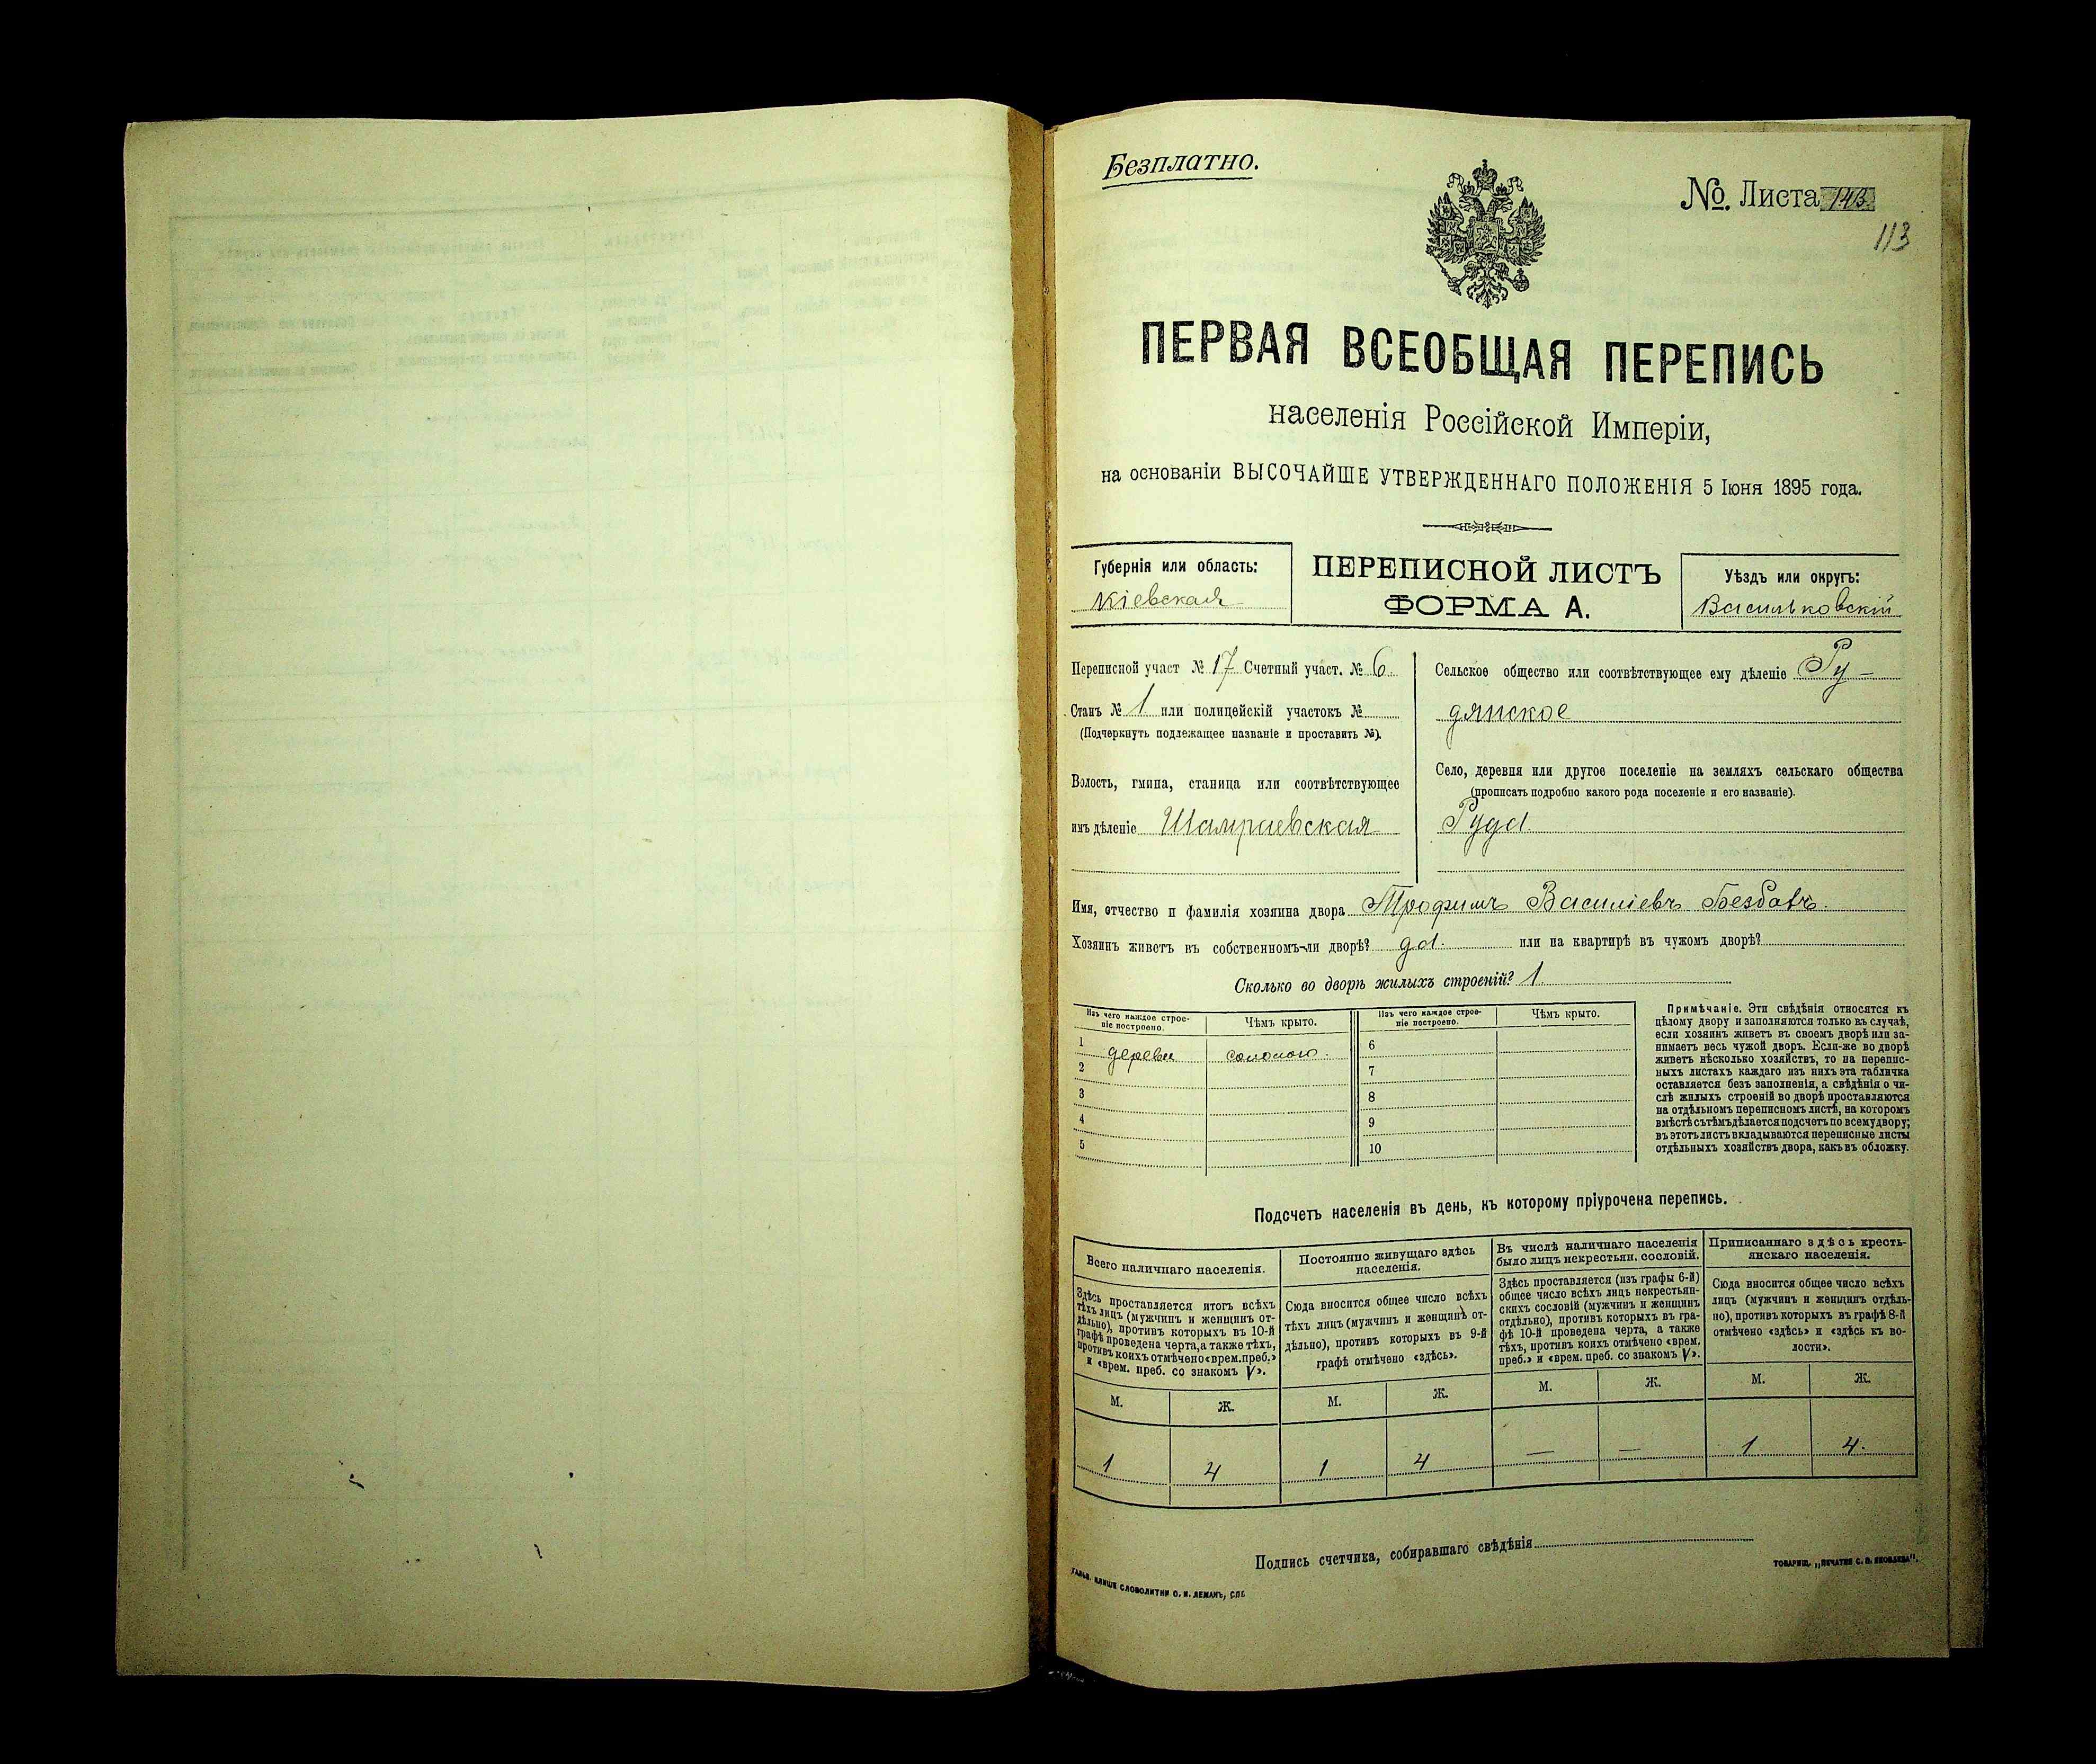 Безплатно.
№. Листа 143.
113
ПЕРВАЯ ВСЕОБЩАЯ ПЕРЕПИСЬ
населенія Россійской Имперіи,
на основаніи ВЫСОЧАЙШЕ УТВЕРЖДЕННАГО ПОЛОЖЕНІЯ 5 Іюня 1895 года.
Губернія или область:
Кіевская
ПЕРЕПИСНОЙ ЛИСТЪ
ФОРМА А.
Уѣздъ или округъ:
Васильковскій
Переписной участ № 17 Счетный участ. № 6.
Станъ № 1 или полицейскій участокъ №
(Подчеркнуть подлежащее названіе и проставить №).
Волость, гмина, станица или соотвѣтствующее
имъ дѣленіе Шамраевская
Сельское общество или соотвѣтствующее ему дѣленіе Ру-
дянское
Село, деревня или другое поселеніе на земляхъ сельскаго общества
(прописать подробно какого рода поселеніе и его названіе).
Руда.
Имя, отчество и фамилія хозяина двора Трофимъ Василіевъ
Хозяинъ живетъ въ собственномъ-ли дворѣ? да. или на квартирѣ въ чужомъ дворѣ?
Сколько во дворѣ жилыхъ строеній? 1
Изъ чего каждое строе-
ніе построено.
Чѣмъ крыто.
Изъ чего каждое строе-
ніе построено.
Чѣмъ крыто.
1 дерева соломою. 6
2 7
3 8
4 9
5 10
Примѣчаніе. Эти свѣдѣнія относятся къ
цѣлому двору и заполняются только въ случаѣ,
если хозяинъ живетъ въ своемъ дворѣ или за-
нимаетъ весь чужой дворъ. Если-же во дворѣ
живетъ нѣсколько хозяйствъ, то на перепис-
ныхъ листахъ каждаго изъ нихъ эта табличка
оставляется безъ заполненія, а свѣдѣнія о чи-
слѣ жилыхъ строеній во дворѣ проставляются
на отдѣльномъ переписномъ листѣ, на которомъ
вмѣстѣ съ тѣмъ дѣлается подсчетъ по всему двору;
въ этотъ листъ вкладываются переписные листы
отдѣльныхъ хозяйствъ двора, какъ въ обложку.
Подсчетъ населенія въ день, къ которому пріурочена перепись.
Всего наличнаго населенія.
Здѣсь проставляется итогъ всѣхъ
тѣхъ лицъ (мужчинъ и женщинъ от-
дѣльно), противъ которыхъ въ 10-й
графѣ проведена черта, а также тѣхъ,
противъ коихъ отмѣчено «врем. преб.»
и «врем. преб. со знакомъ V».
Постоянно живущаго здѣсь
населенія.
Сюда вносится общее число всѣхъ
тѣхъ лицъ (мужчинъ и женщинъ от-
дѣльно), противъ которыхъ въ 9-й
графѣ отмѣчено «здѣсь».
Въ числѣ наличнаго населенія
было лицъ некрестьян. сословій.
Здѣсь проставляется (изъ графы 6-й)
общее число всѣхъ лицъ некрестьян-
скихъ сословій (мужчинъ и женщинъ
отдѣльно), противъ которыхъ въ гра-
фѣ 10-й проведена черта, а также
тѣхъ, противъ коихъ отмѣчено «врем.
преб.» и «врем. преб. со знакомъ V».
Приписаннаго здѣсь кресть-
янскаго населенія.
Сюда вносится общее число всѣхъ
лицъ (мужчинъ и женщинъ отдѣль-
но), противъ которыхъ въ графѣ 8-й
отмѣчено «здѣсь» и «здѣсь къ во-
лости».
М. Ж. М. Ж. М. Ж. М. Ж.
1 4 1 4 — — 1 4.
Подпись счетчика, собиравшаго свѣдѣнія
ГАЛЬВ. КЛИШЕ СЛОВОЛИТНИ О. И. ЛЕМАНЪ, СПБ
ТОВАРИЩ. „ПЕЧАТНЯ С. П. ЯКОВЛЕВА".